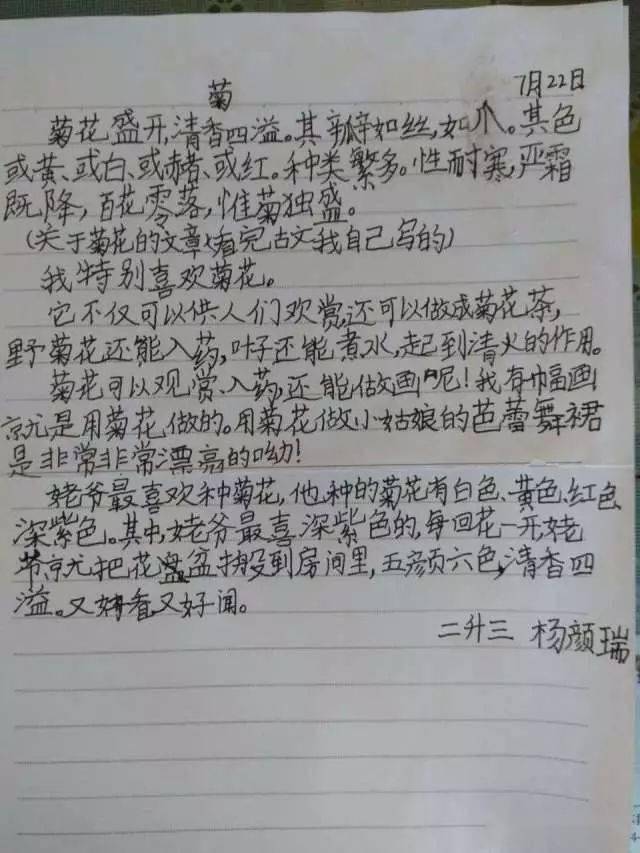 菊 7月22日
菊花盛开,清香四溢。其瓣如丝,如爪。其色
或黄、或白、或赭、或红。种类繁多。性耐寒,严霜
既降,百花零落,惟菊独盛。
(关于菊花的文章,看完古文我自己写的)
我特别喜欢菊花。
它不仅可以供人们欢赏,还可以做成菊花茶,
野菊花还能入药,叶子还能煮水,起到清火的作用。
菊花可以观赏、入药,还能做画呢!我有幅画
就是用菊花做的。用菊花做小姑娘的芭蕾舞裙
是非常非常漂亮的呦!
姥爷最喜欢种菊花,他种的菊花有白色、黄色、红色
深紫色。其中,姥爷最喜深紫色的,每回花一开,姥
爷就把花盆搬到房间里,五颜六色,清香四
溢。又好看又好闻。
二升三 杨颜瑞